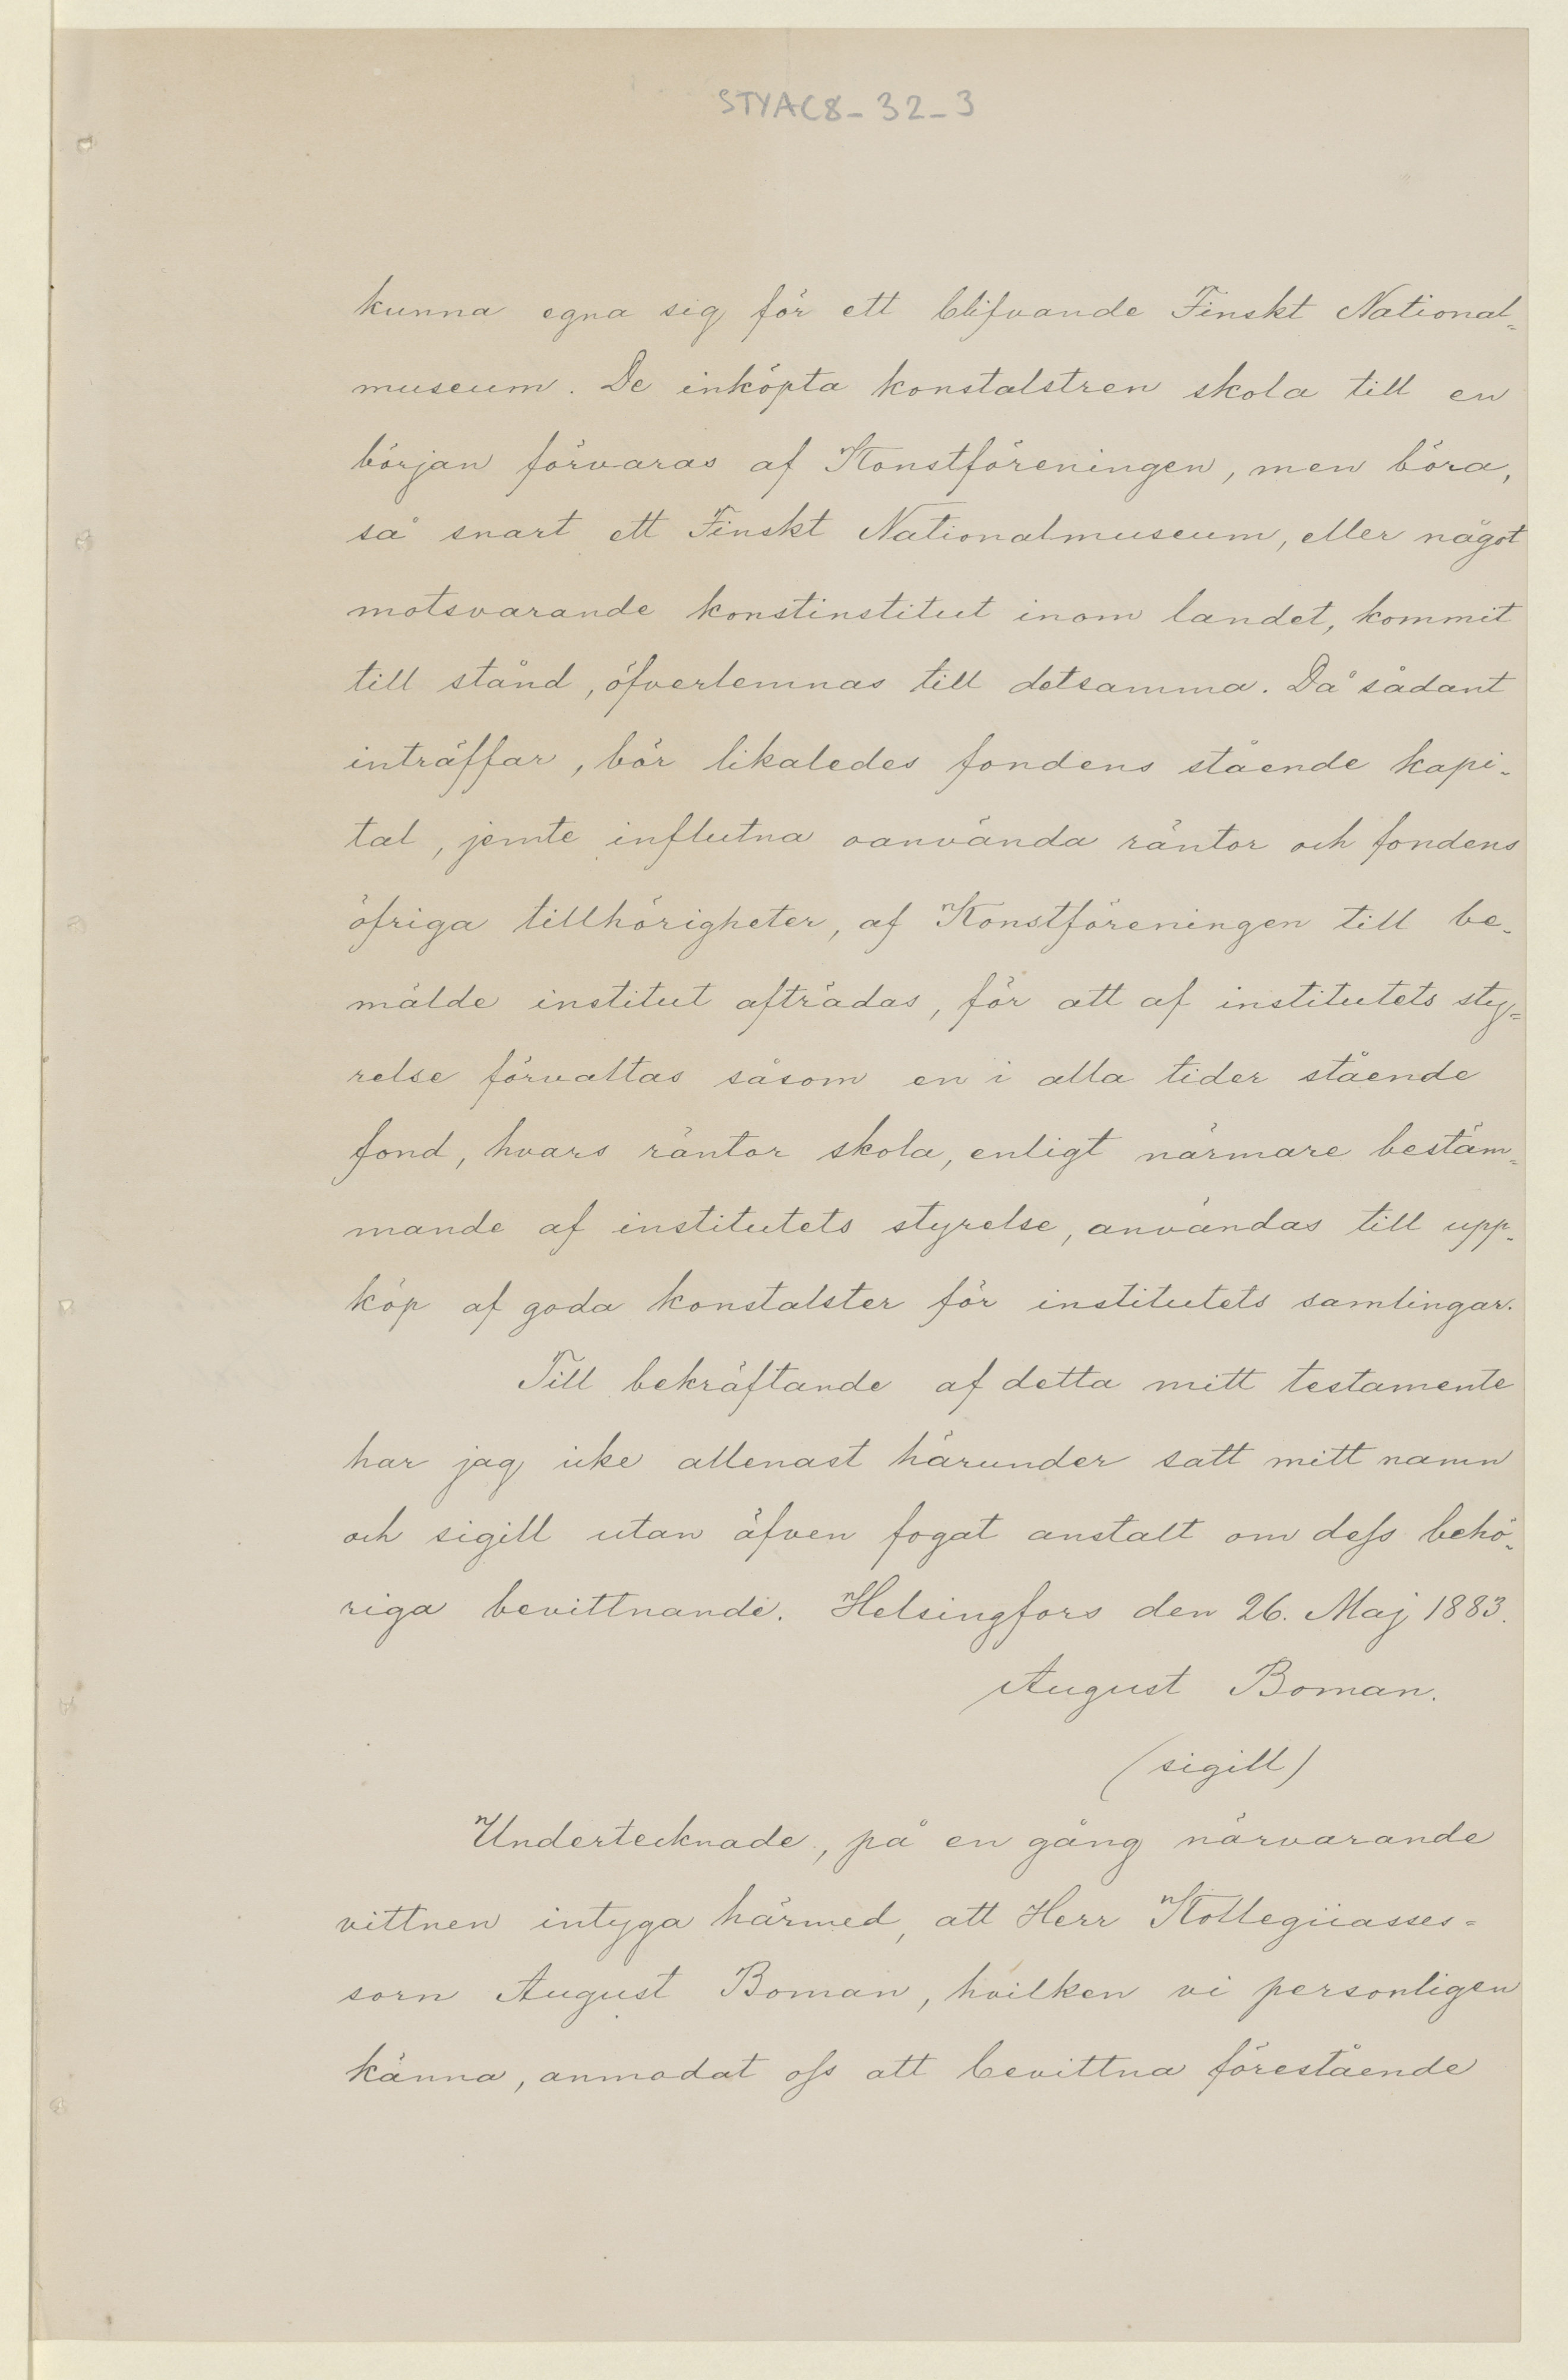 STYAC8-32-3
kunna egna sig för ett blifvande Finskt National-
museum. De inköpta konstalstren skola till en
början förvaras af Konstföreningen, men böra,
så snart ett Finskt Nationalmuseum, eller något
motsvarande konstinstitut inom landet, kommit
till stånd, öfverlemnas till detsamma. Då sådant
inträffar, bör likaledes fondens stående kapi-
tal, jemte influtna oanvända räntor och fondens
öfriga tillhörigheter, af Konstföreningen till be-
mälde institut afträdas, för att af institutets sty-
relse förvaltas såsom en i alla tider stående
fond, hvars räntor skola, enligt närmare bestäm-
mande af institutets styrelse, användas till upp-
köp af goda konstalster för institutets samlingar.
Till bekräftande af detta mitt testamente
har jag icke allenast härunder satt mitt namn
och sigill utan äfven fogat anstalt om dess behö-
riga bevittnande. Helsingfors den 26. Maj 1883.
August Boman.
(sigill)
Undertecknade, på en gång närvarande
vittnen intyga härmed, att Herr Kollegiiasses-
sorn August Boman, hvilken vi personligen
känna, anmodat oss att bevittna förestående